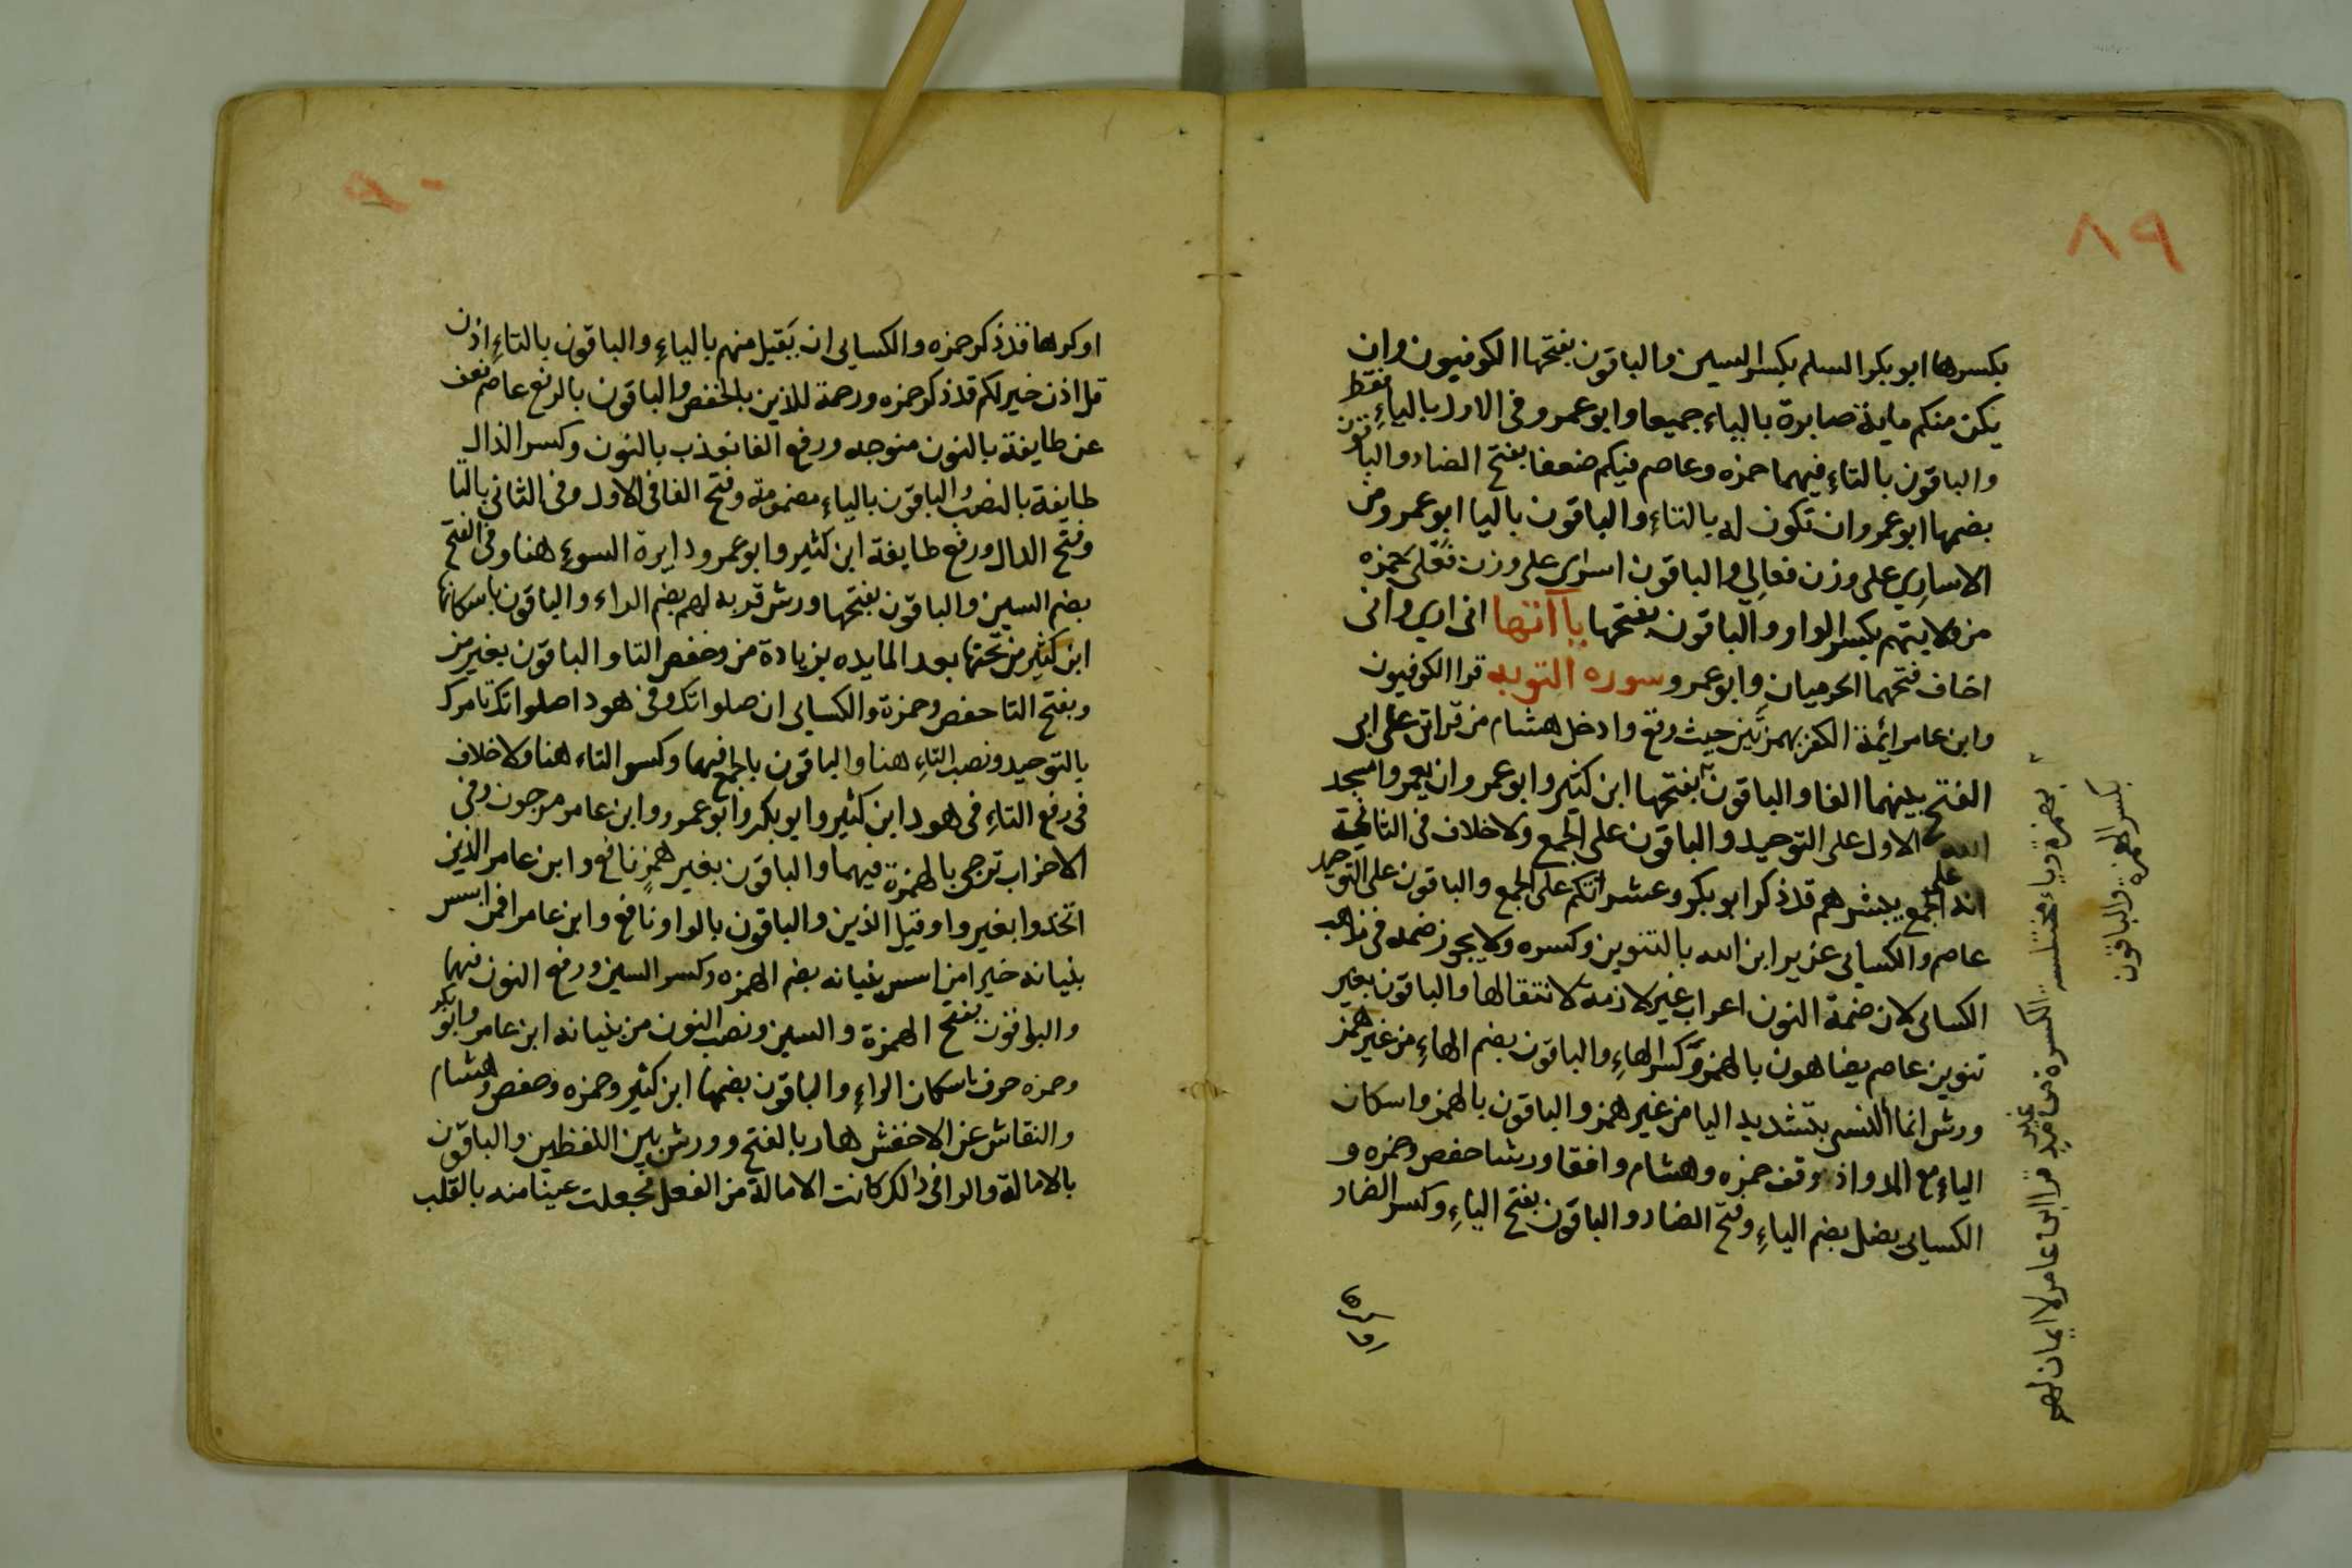 ٨٩
بكسرها ابو بكر السلم بكسر السين والباقون بفتحها الكوفيون وان
يكن منكم ماية صابرة بالياء جميعا وابو عمرو فى الاول بالياءِ فقط
والباقون بالتاءِ فيهما حمزه وعاصم فيكم ضعفا بفتح الضاد والباقون
بضمها ابو عمرو ان تكون له بالتاءِ والباقون باليا ابو عمرو من
الاسارِي على وزن فعالى والباقون اسرى على وزن فَعْلى حمزه
من ولايتهم بكسر الواو والباقون بفتحها يا آتها انى ارى وانى
اخاف فتحهما الحرميان وابو عمرو سوره التوبه قرا الكوفيون
وابن عامر ائمة الكفر بهمزتين حيث وقع وادخل هشام من قراتى على ابى
الفتح بينهما الفا والباقون بفتحها ابن كثير وابو عمرو ان يعمروا مسجد
الله الاول على التوحيد والباقون على الجمع ولا خلاف فى الثانى
انه على الجمع يبشرهم قد ذكر ابو بكر وعشيراتكم على الجمع والباقون على التوحيد
عاصم والكسايى عزير ابن الله بالتنوين وكسره ولا يجوز ضمه فى مذاهب
الكسايى لان ضمة النون اعراب غير لازمة لانتقالها والباقون بغير
تنوين عاصم يضاهون بالهمز وكسر الهاءِ والباقون بضم الهاءِ من غير همز
ورش انما النسى بتشديد اليا من غير همز والباقون بالهمز واسكان
الياءِ مع المد واذا وقف حمزه وهشام وافقا ورشا حفص وحمزه و
الكسايى يضل بضم الياءِ وفتح الضاد والباقون بفتح الياءِ وكسر الضاد
بهمزة وياء مختلسه الكسره من غير مد قرا ابن عامر لا ايمان لهم
بكسر الهمزة والباقون
٩٠
او كرها قد ذكر حمزه والكسايى ان يَقبل منهم بالياءِ والباقون بالتاءِ اذن
قل اذن خير لكم قد ذكر حمزه ورحمة للذين بالخفض والباقون بالرفع عاصم نعف
عن طايفة بالنون منوجه ورفع الفا نعذب بالنون وكسر الذال
طايفة بالنصب والباقون بالياءِ مضمومة وفتح الفا فى الاول وفى الثانى بالتا
وفتح الدال ورفع طايفة ابن كثير وابو عمرو دايرة السوءِ هنا وفى الفتح
بضم السين والباقون بفتحها ورش قربه لهم بضم الراء والباقون باسكانها
ابن كثير من تحتها بعد المايه بزيادة من وخفض التا والباقون بغير من
وبفتح التا حفص وحمزة والكسايى ان صلواتك وفى هود اصلواتك تامرك
بالتوحيد ونصب التاءِ هنا والباقون بالجمع فيهما وكسر التاء هنا ولا خلاف
فى رفع التاءِ فى هود ابن كثير وابو بكر وابو عمرو وابن عامر مرجون وفى
الاحزاب ترجى بالهمزة فيهما والباقون بغير همزٍ نافع وابن عامر الذين
اتخدوا بغير واو قبل الذين والباقون بالواو نافع وابن عامر افمن اسس
بنيانه خير امن اسس بنيانه بضم الهمزه وكسر السين ورفع النون فيهما
والباقون بفتح الهمزة والسين ونصب النون من بنيانه ابن عامر وابو بكر
وحمزه جرف باسكان الراءِ والباقون بضمها ابن كثير وحمزه وحفص وهشام
والنقاش عن الاخفش هار بالفتح وورش بين اللفظين والباقون
بالامالة والرا فى ذالك كانت الامالة من الفعل فجعلت عينا منه بالقلب